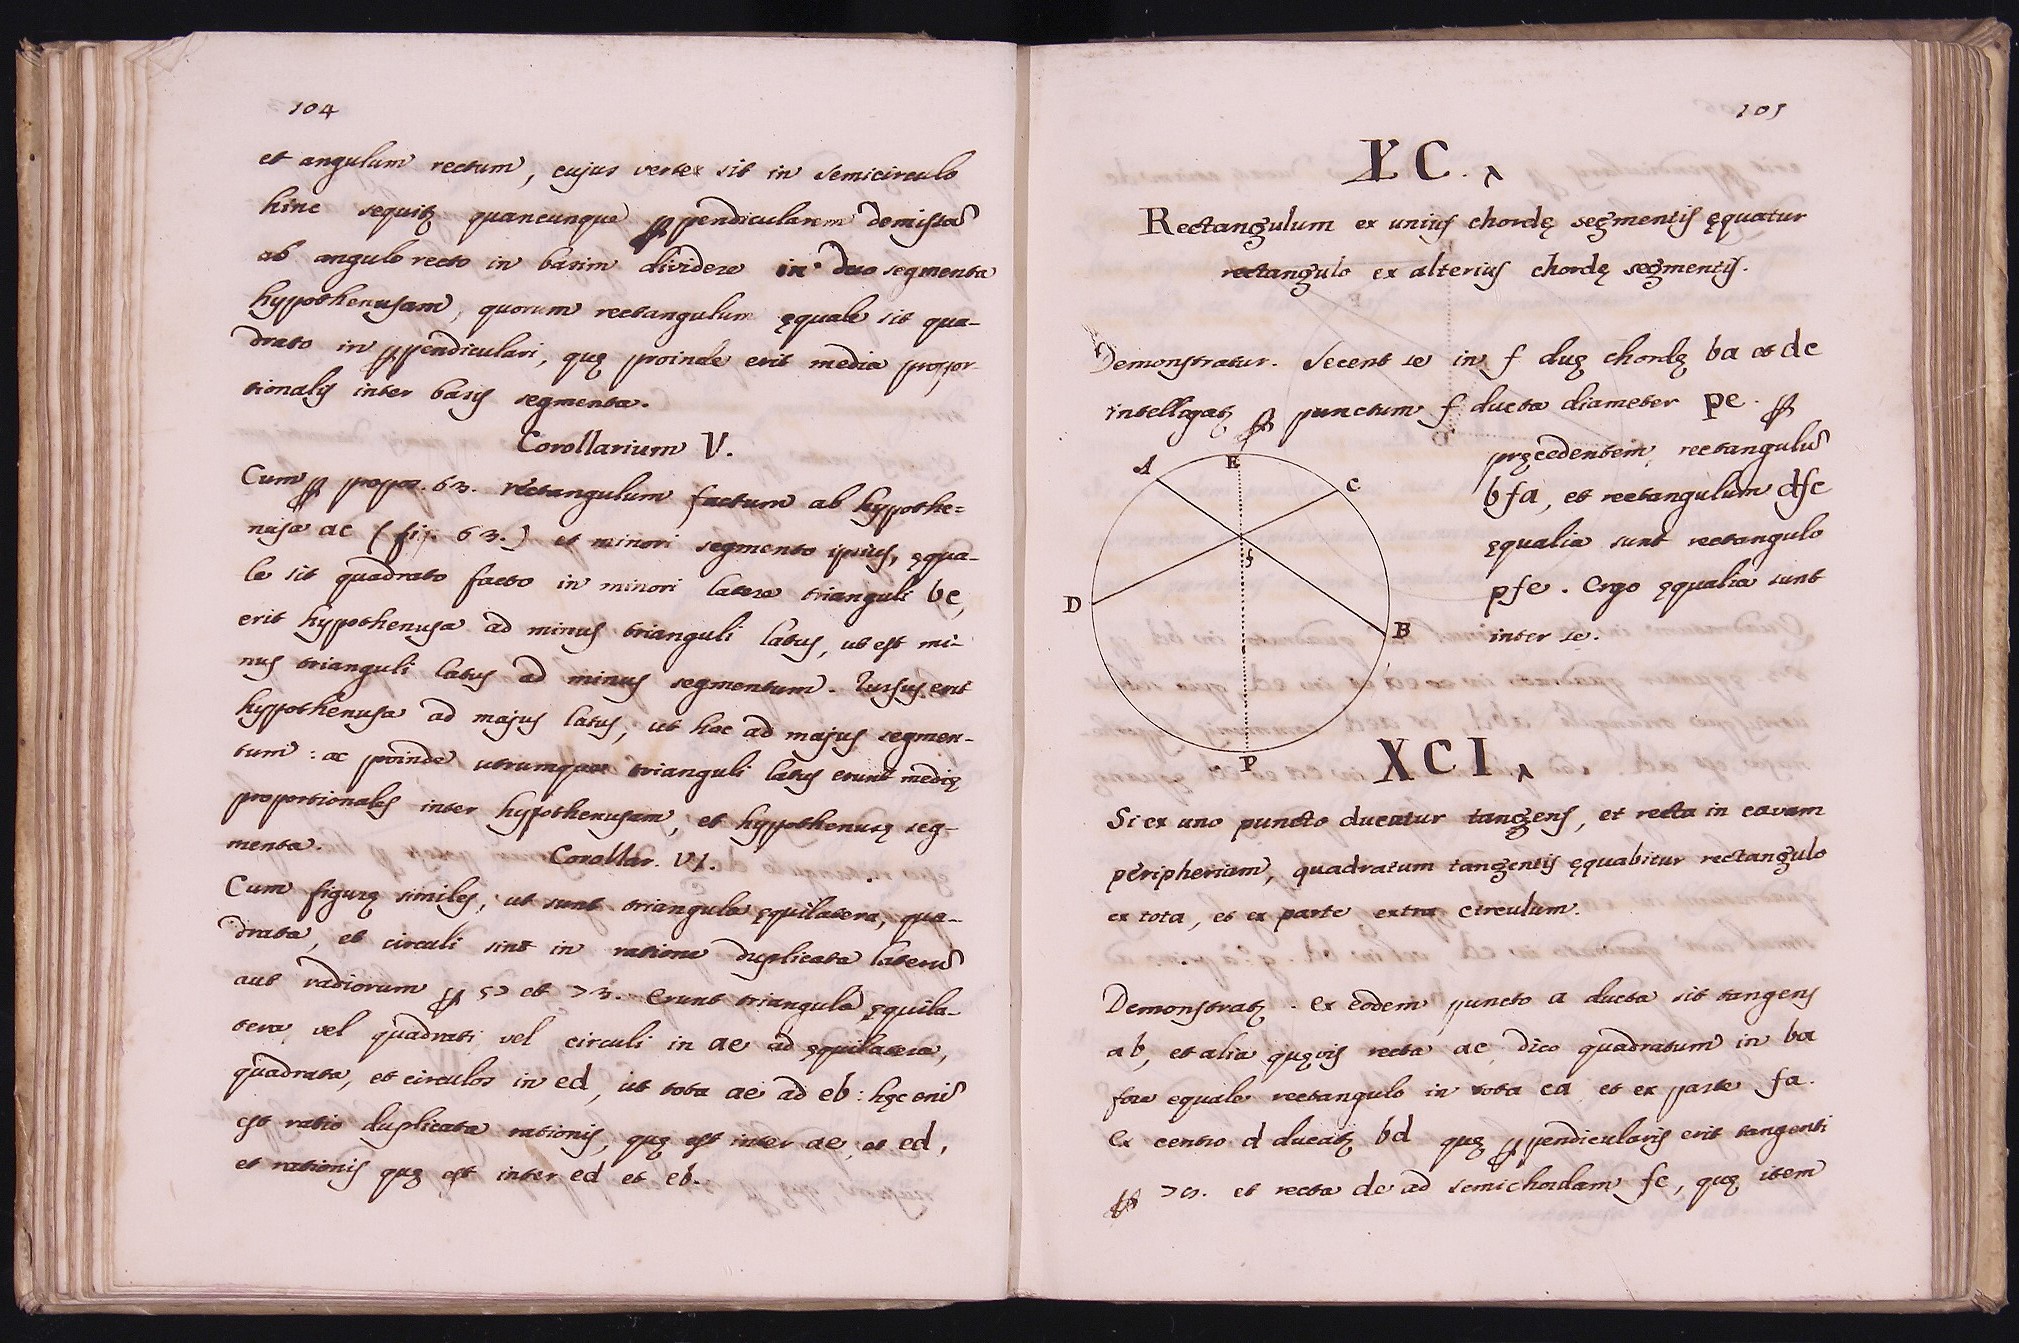 104
et angulum rectum, cujus vertex sit in semicirculo
hinc sequitʒ quancunque ꝑpendicularem demissā
ab angulo recto in basim dividere in duo segmenta
hypothenusam, quorum rectangulum ęquale sit qua-
drato in ꝑpendiculari, quę proinde erit media propor-
tionalis inter basis segmenta.
Corollarium V.
Cum ꝑ propos. 63. rectangulum factum ab hypothe=
nusa ac (fig. 63.) et minori segmento ipsius, ęqua-
le sit quadrato facto in minori latere trianguli bc,
erit hypothenusa ad minus trianguli latus, ut est mi-
nus trianguli latus ad minus segmentum. Rursus erit
hypothenusa ad majus latus, ut hoc ad majus segmen-
tum: ac proinde utrumque trianguli latus erunt medię
proportionales inter hypothenusam, et hypothenusę seg-
menta.
Corollar. VI.
Cum figurę similes, ut sunt triangula ęquilatera, qua-
drata, et circuli sint in ratione duplicata laterū
aut radiorum ꝑ 57 et 73. Erunt triangula ęquila-
tera, vel quadrati, vel circuli in ae ad ęquilatera,
quadrata, et circulos in ed, ut tota ae ad eb: hęc enī
est ratio duplicata rationis, quę est inter ae, et ed,
et rationis quę est inter ed et eb.
105
XC.
Rectangulum ex unius chordę segmentis ęquatur
rectangulo ex alterius chordę segmentis.
Demonstratur. Secent se in f duę chordę ba et dc
intelligatʒ ꝑ punctum f ducta diameter pe. ꝑ
pręcedentem, rectangulū
bfa, et rectangulum dfc
ęqualia sunt rectangulo
pfe. Ergo ęqualia sunt
inter se.
A
E
C
f
D
B
P
XCI
Si ex uno puncto ducatur tangens, et recta in cavam
peripheriam, quadratum tangentis ęquabitur rectangulo
ex tota, et ex parte extra circulum.
Demonstratʒ. Ex eodem puncto a ducta sit tangens
ab, et alia quęvis recta ac, dico quadratum in ba
fore equale rectangulo in tota ca et ex parte fa.
Ex centro d ducatʒ bd quę ꝑpendicularis erit tangenti
ꝑ 70. et recta de ad semichordam fc, quę item